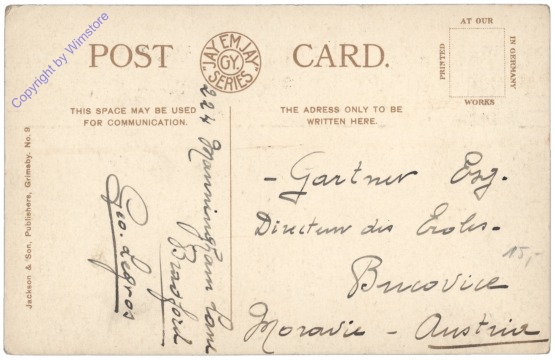 POST CARD.
"JAY EM JAY" GY. SERIES
AT OUR
PRINTED
IN GERMANY
WORKS
THIS SPACE MAY BE USED
FOR COMMUNICATION.
THE ADRESS ONLY TO BE
WRITTEN HERE.
224 Manningham Lane
Bradford
Geo. Legros
- Gartner Esq.
Directeur des Ecoles -
Bucovice
Moravie - Austria
15,-
Jackson & Son, Publishers, Grimsby. No. 9
Copyright by Wimstore